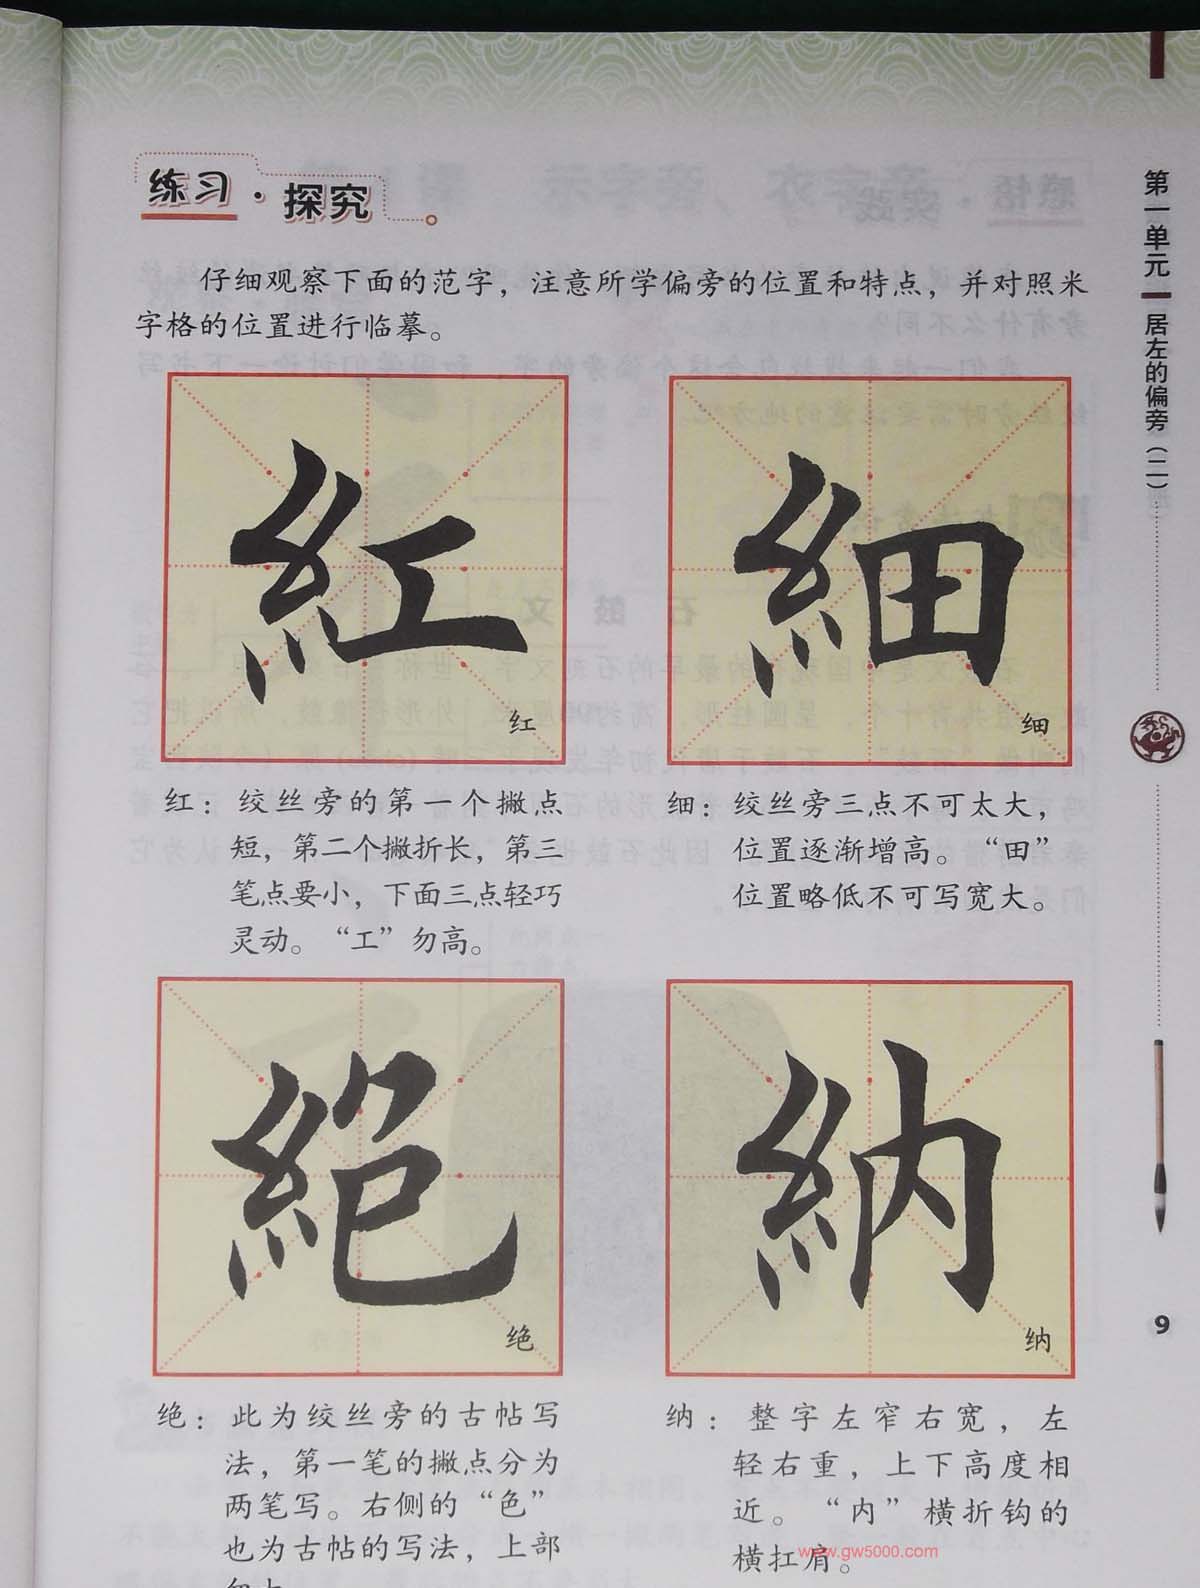 练习·探究
仔细观察下面的范字，注意所学偏旁的位置和特点，并对照米
字格的位置进行临摹。
紅
红
細
细
红：绞丝旁的第一个撇点
短，第二个撇折长，第三
笔点要小，下面三点轻巧
灵动。“工”勿高。
细：绞丝旁三点不可太大，
位置逐渐增高。“田”
位置略低不可写宽大。
絶
绝
納
纳
绝：此为绞丝旁的古帖写
法，第一笔的撇点分为
两笔写。右侧的“色”
也为古帖的写法，上部
纳：整字左窄右宽，左
轻右重，上下高度相
近。“内”横折钩的
横扛肩。
www.gw5000.com
第一单元
居左的偏旁（二）
9
石 鼓 文